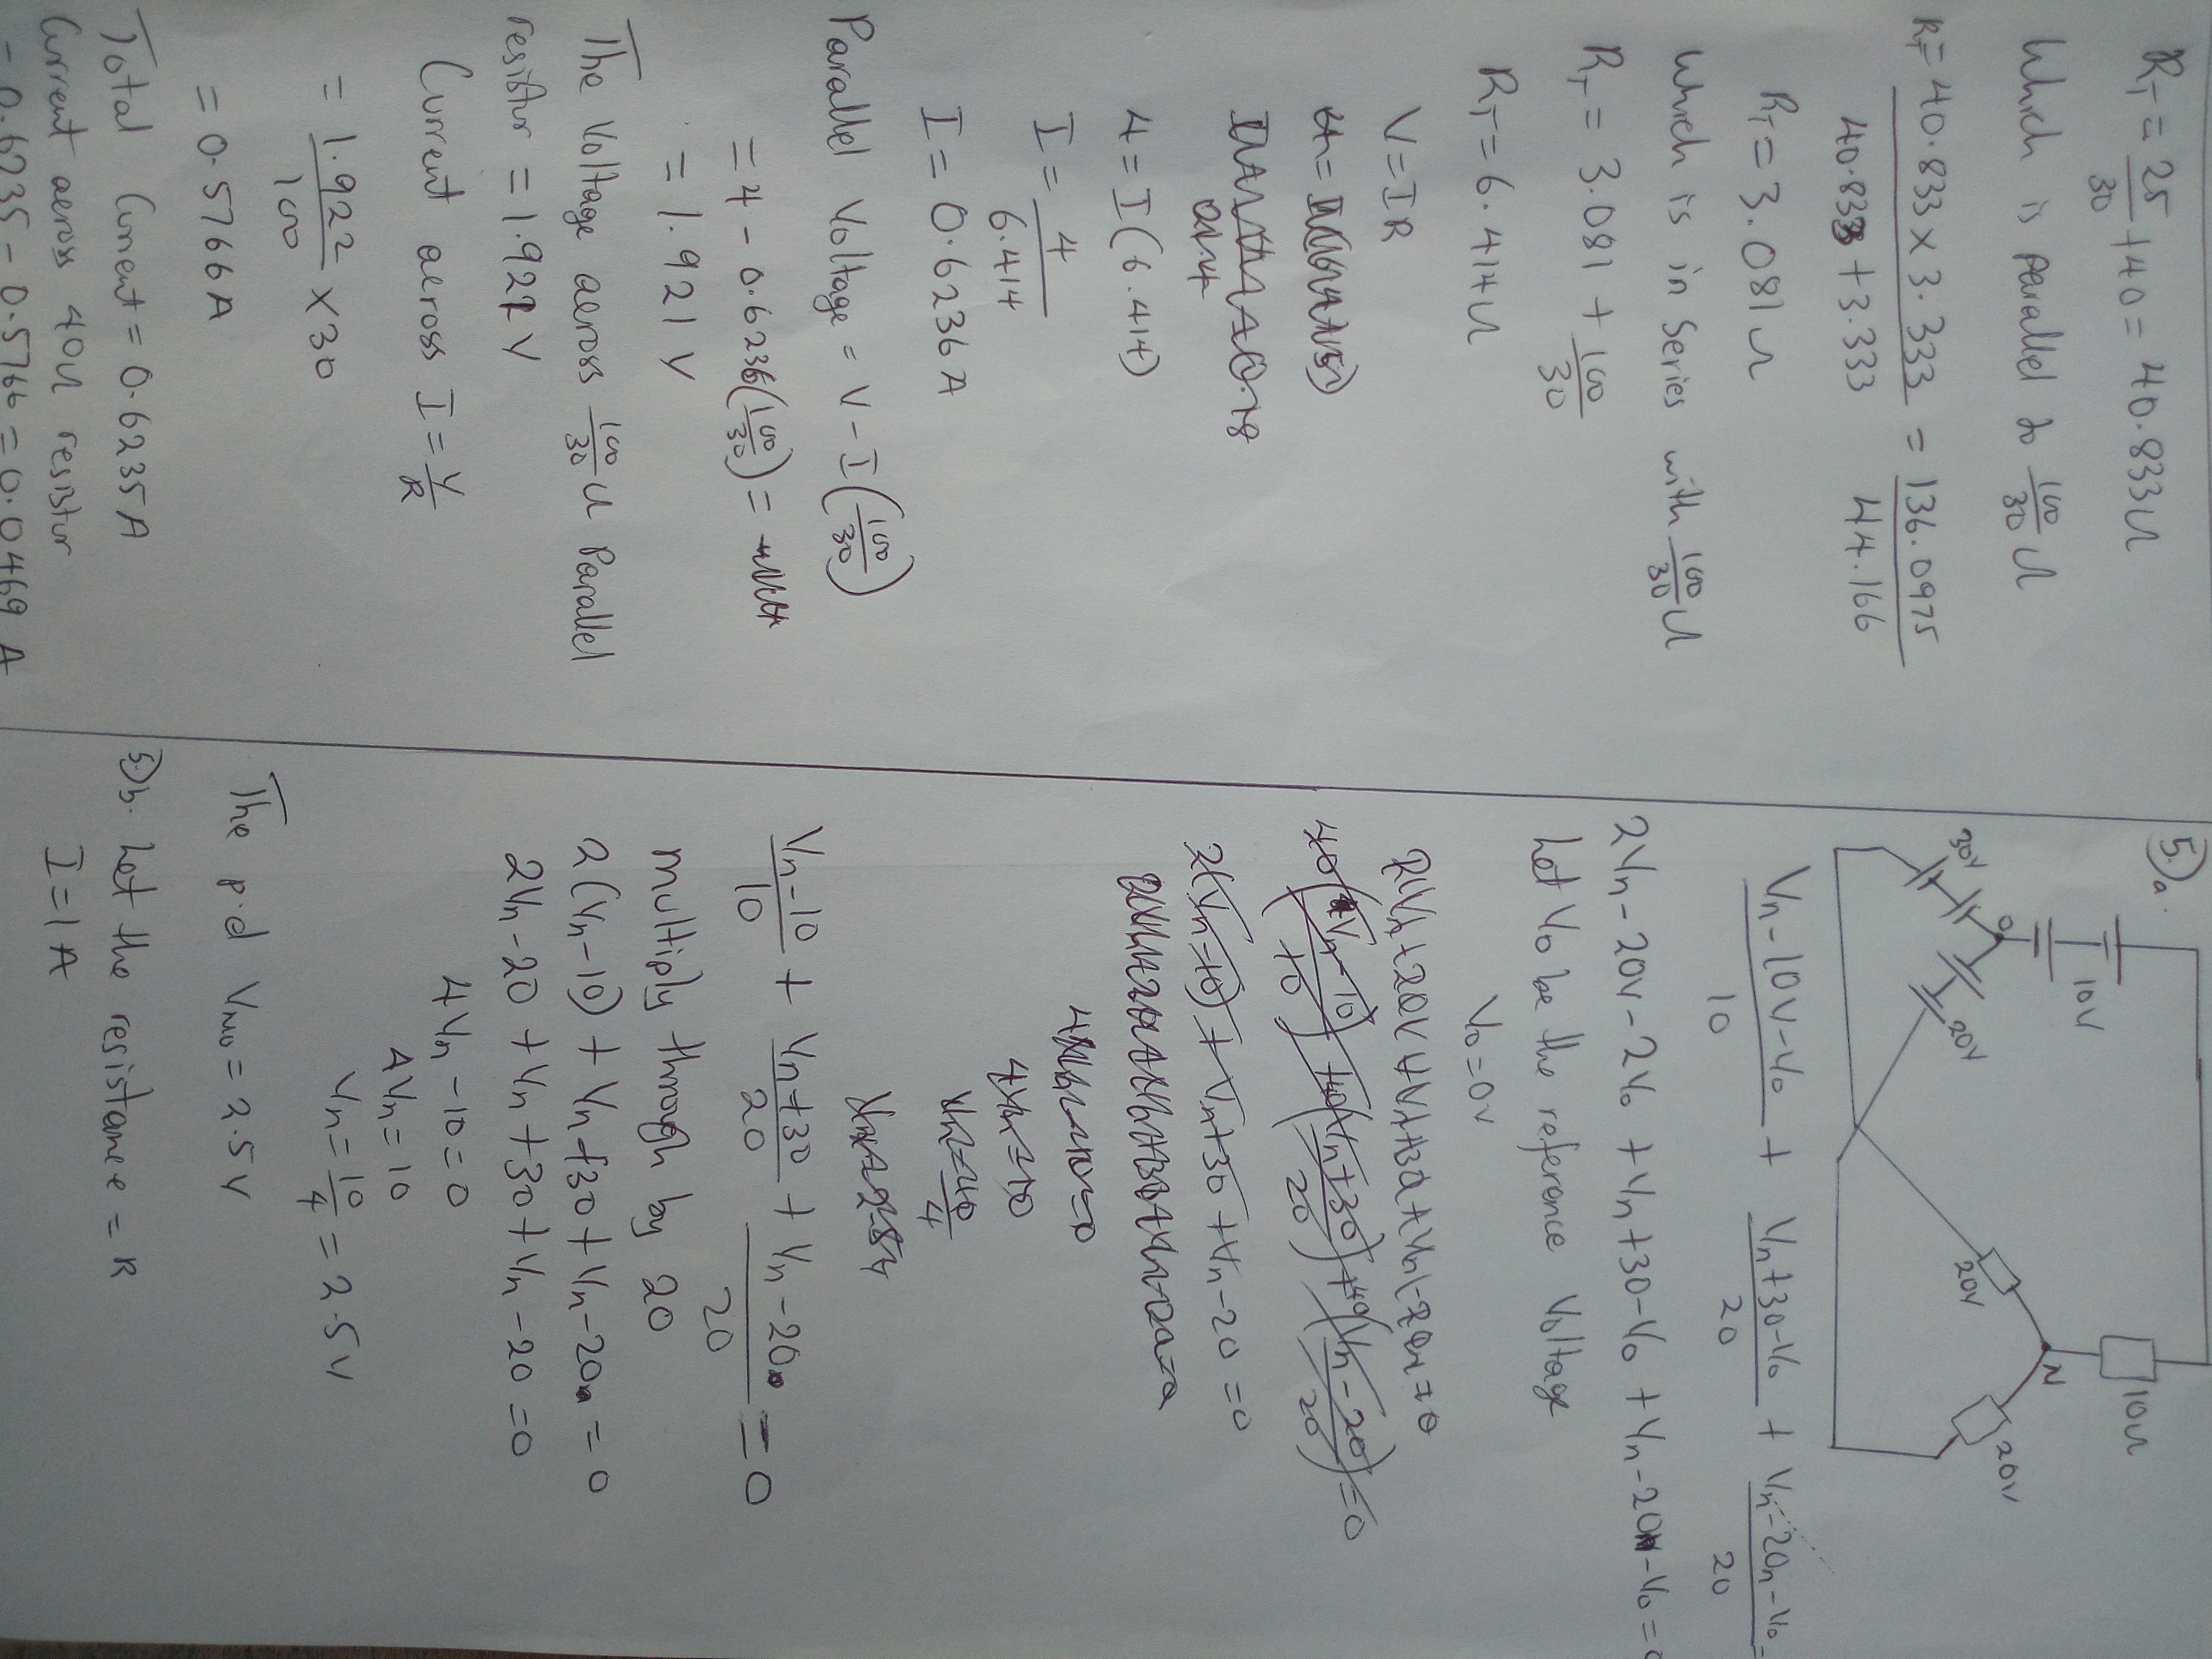 R_T = 25/30 + 40 = 40.833Ω
Which is parallel to 100/30 Ω
R_T = 40.833 × 3.333 / 40.833 + 3.333 = 136.0975 / 44.166
R_T = 3.081Ω
Which is in Series with 100/30 Ω
R_T = 3.081 + 100/30
R_T = 6.414Ω
V = IR
4 = I(6.414)
I = 4/6.414
I = 0.6236A
Parallel Voltage = V - I(100/30)
= 4 - 0.6236(100/30) =
= 1.921V
The Voltage aeross 100/30 Ω Parallel
resistor = 1.921V
Current aeross I = V/R
= 1.922/100 × 30
= 0.5766A
Total Current = 0.6235A
Current aeross 40Ω resistor
= 0.6235 - 0.5766 = 0.0469 A
5.)a.
10V
30V
O
20V
20V
N
10Ω
20V
Vn-10V-V0 / 10 + Vn+30-V0 / 20 + Vn-20n-V0 / 20 =
2Vn-20V-2V0 + Vn+30-V0 + Vn-20n-V0 = 0
Let V0 be the reference Voltage
V0 = 0V
2(Vn-10) + Vn+30 + Vn-20 = 0
Vn-10 / 10 + Vn+30 / 20 + Vn-20 / 20 = 0
multiply through by 20
2(Vn-10) + Vn+30 + Vn-20 = 0
2Vn-20 + Vn+30 + Vn-20 = 0
4Vn - 10 = 0
4Vn = 10
Vn = 10/4 = 2.5V
The p.d Vnvo = 2.5V
5)b. Let the resistance = R
I = 1A